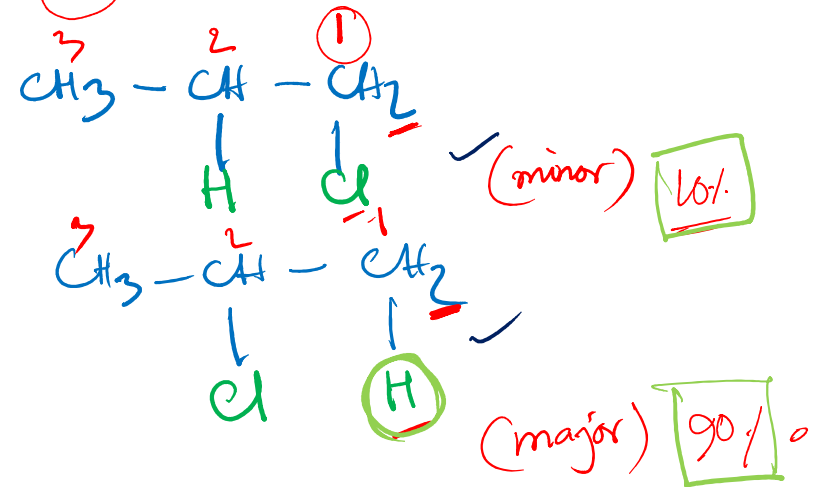 3 2 1
CH3 - CH - CH2
H Cl (minor) 10%
3 2 1
CH3 - CH - CH2
Cl H
(major) 90%